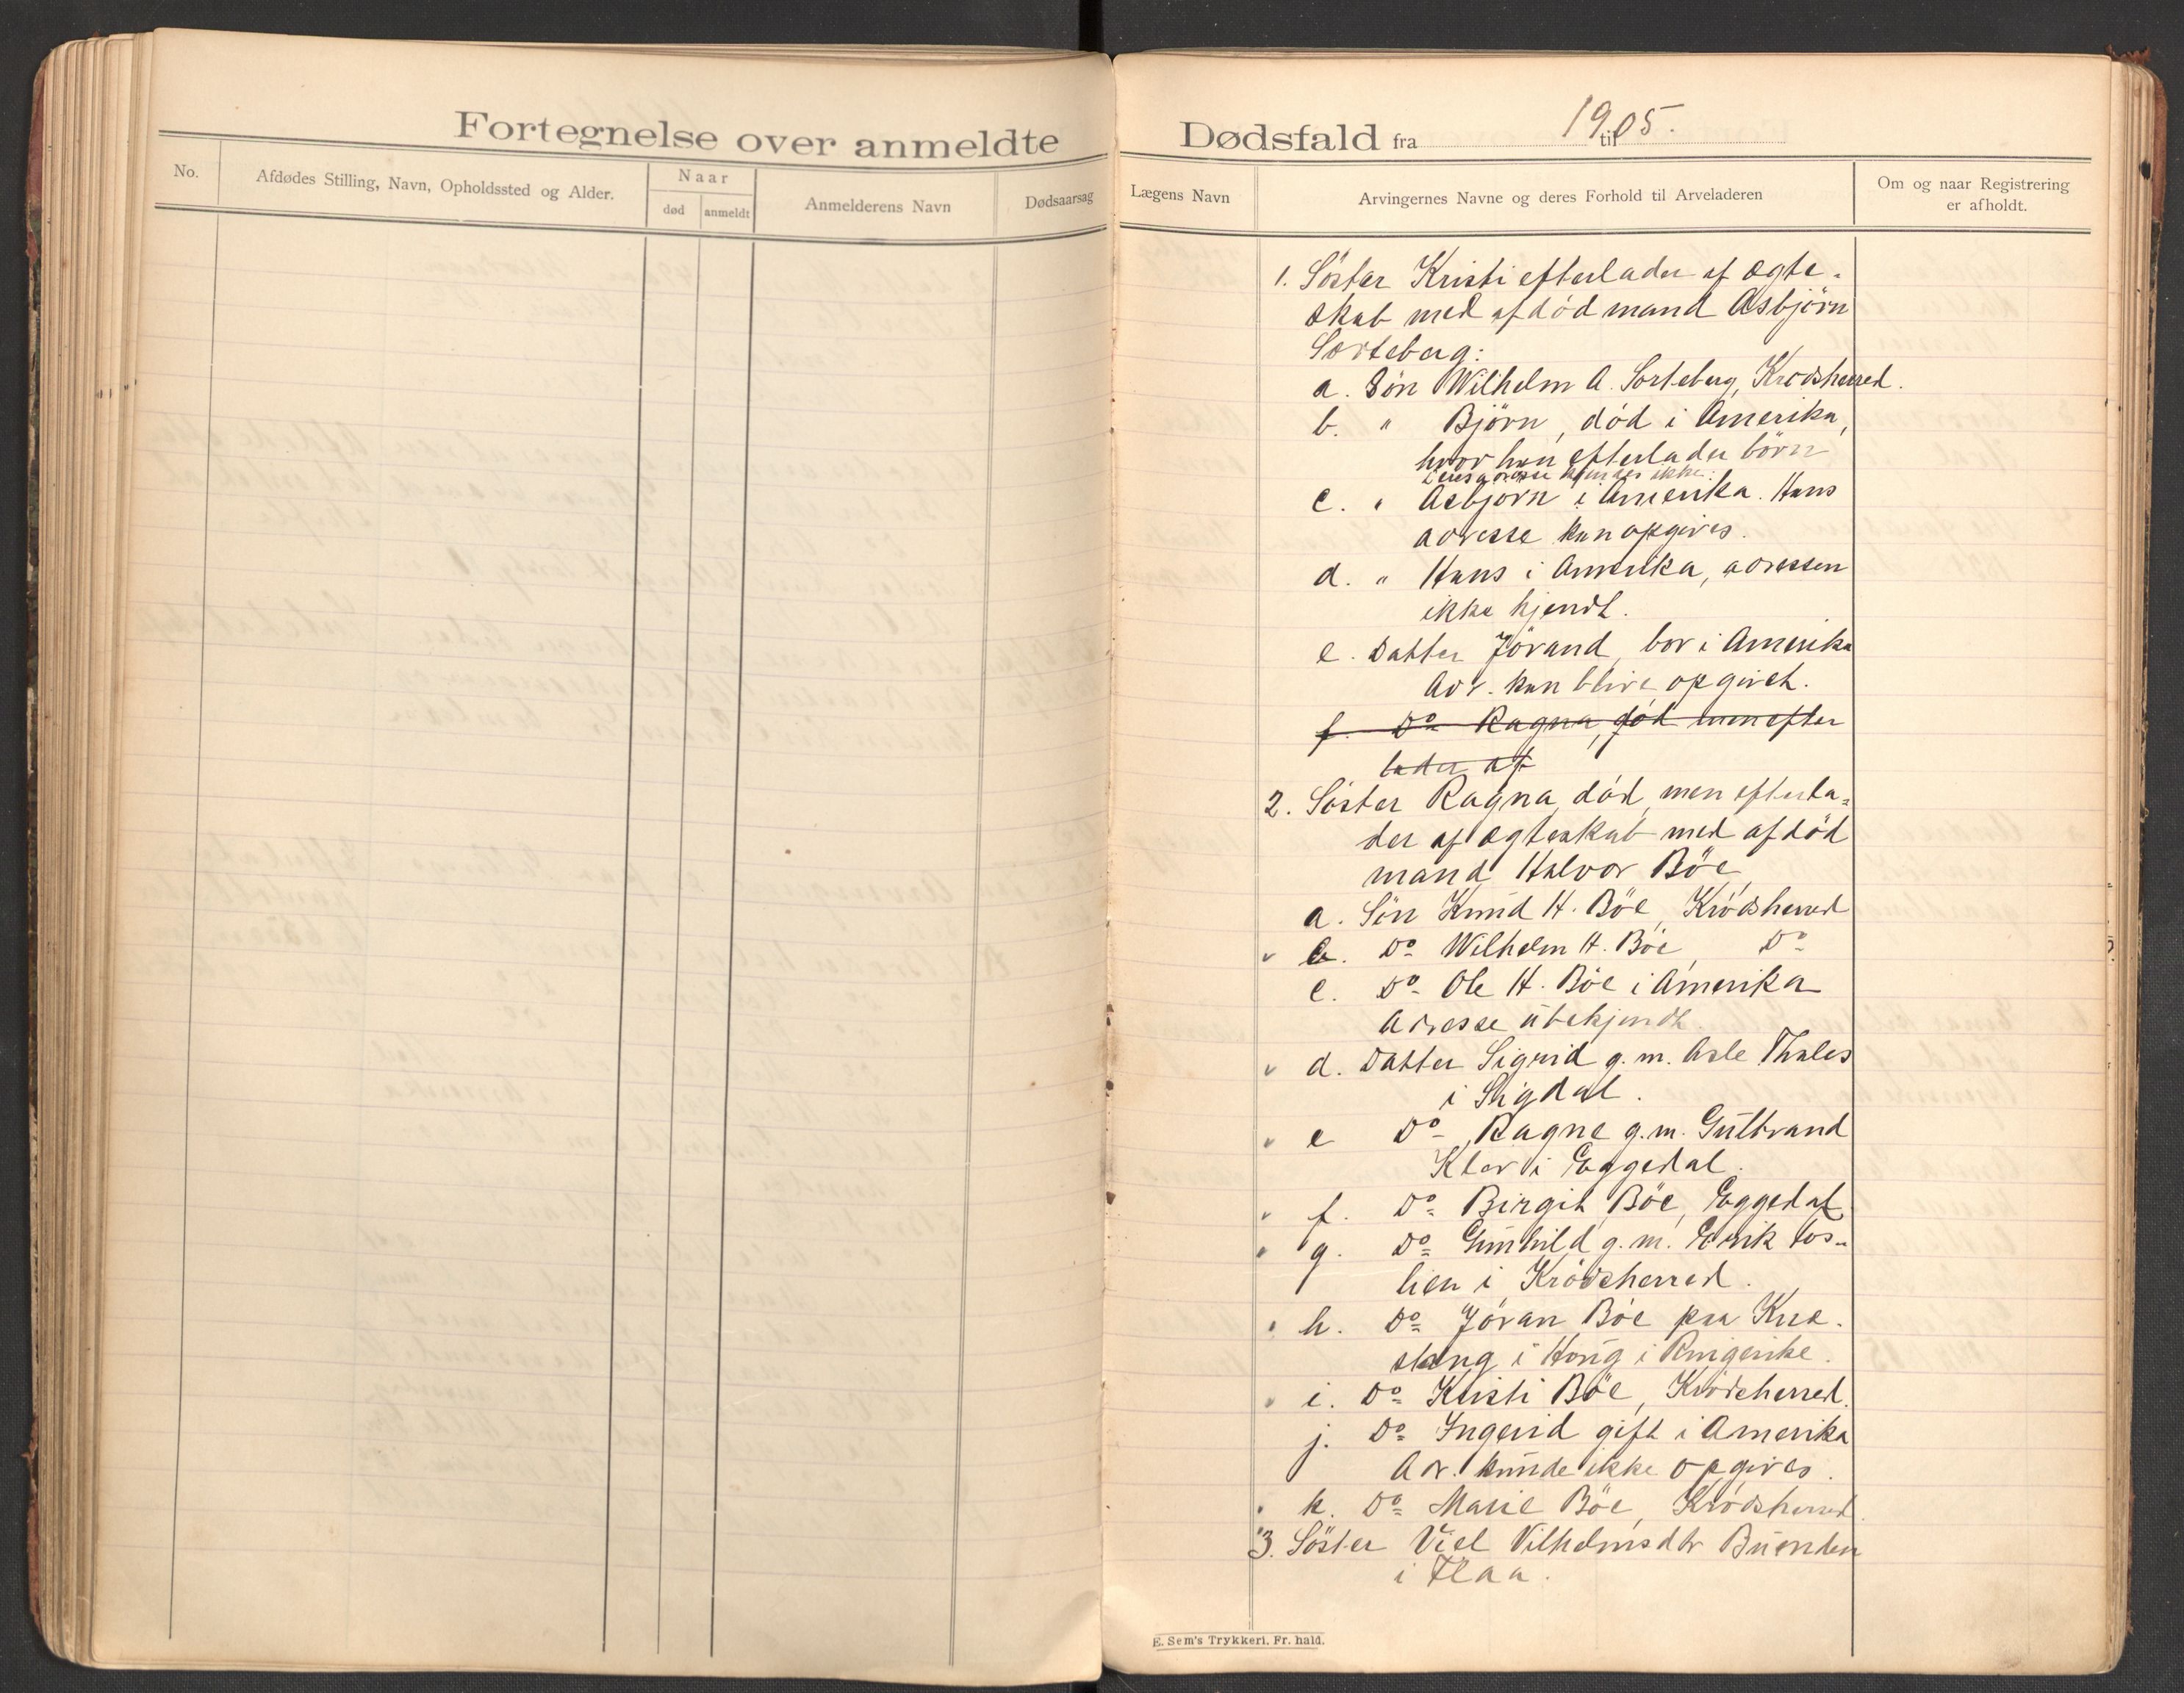 Fortegnelse over anmeldte
No.
Afdødes Stilling, Navn, Opholdssted og Alder.
Naar
død
anmeldt
Anmelderens Navn
Dødsaarsag
Dødsfald fra 1905. til
Lægens Navn
Arvingernes Navne og deres Forhold til Arveladeren
Om og naar Registrering
er afholdt.
1. Söster Kristi efterlader af ægte-
skab med afdöd mand Asbjörn
Sorteberg:
a. Sön Wilhelm A. Sorteberg, Krödsherred.
b. " Björn, död i Amerika,
hvor han efterlader börn
Deres adresse kjendes ikke.
c. " Asbjörn i Amerika. Hans
adresse kan opgives.
d. " Hans i Amerika, adressen
ikke kjendt.
e. Datter Jörand, bor i Amerika
Adr. kan blive opgivet.
f. Do Ragna, död men efter
lader af
2. Söster Ragna, död, men efterla-
der af ægteskab med afdöd
mand Halvor Böe
a. Sön Knud H. Böe, Krödsherred
b. Do Wilhelm H. Böe, Do
c. Do Ole H. Böe i Amerika
Adresse ubekjendt.
d. Datter Sigrid g. m. Asle Thales
i Sigdal.
e Do Ragne g. m. Gulbrand
Klev i Eggedal.
f. Do Birgit Böe, Eggedal
g. Do Gunhild g. m. Erik Los-
lien i Krödsherred.
h. Do Jöran Böe paa Kne-
stang i Houg i Ringerike.
i. Do Kristi Böe, Krödsherred.
j. Do Ingerid gift i Amerika
Adr. kunde ikke opgives.
k. Do Marie Böe, Krödsherred.
3. Söster Viel Vilhelmsdtr Buenden
i Flaa.
E. Sem's Trykkeri, Fr. hald.